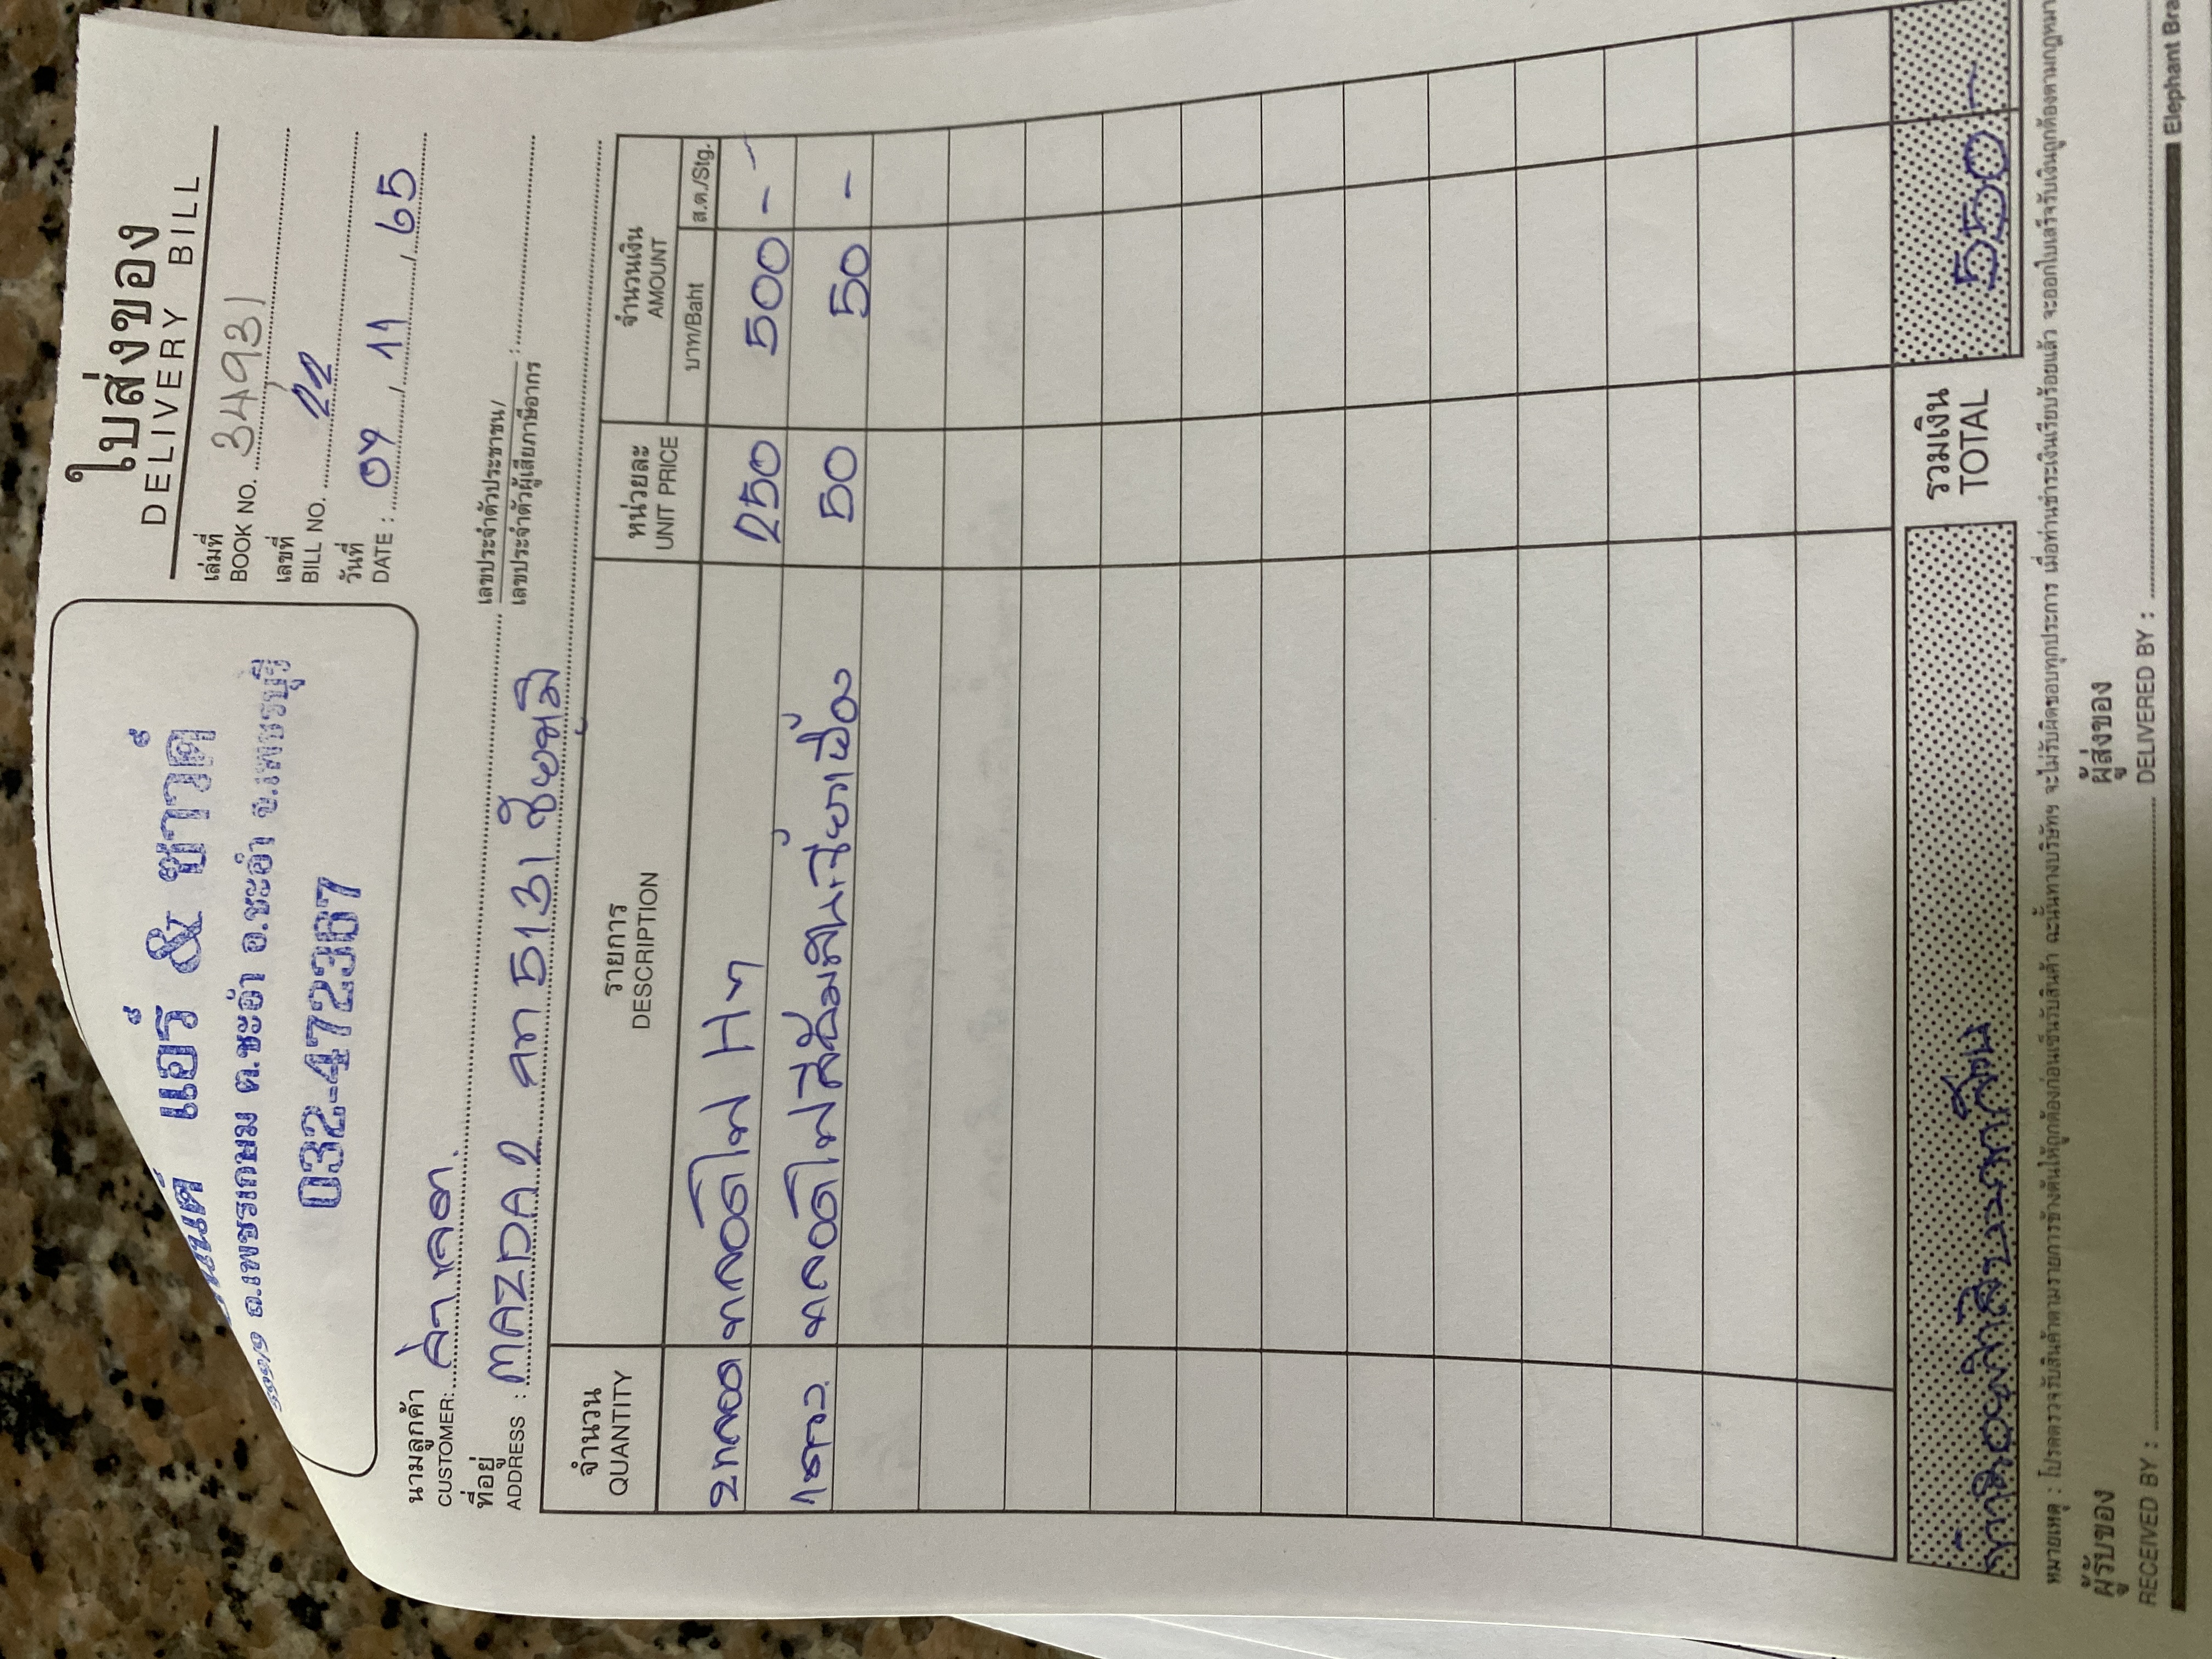 ใบส่งของ
DELIVERY BILL
แอร์ & ซาวด์
ถ.เพชรเกษม ต.ชะอำ อ.ชะอำ จ.เพชรบุรี
032-472387
เล่มที่
BOOK NO. 34931
เลขที่
BILL NO. 22
วันที่
DATE : 09, 11, 65
นามลูกค้า
CUSTOMER:
ที่อยู่
ADDRESS : MAZDA 2 5131
เลขประจำตัวประชาชน/
เลขประจำตัวผู้เสียภาษีอากร :
จำนวน รายการ หน่วยละ จำนวนเงิน
QUANTITY DESCRIPTION UNIT PRICE AMOUNT
บาท/Baht ส.ต./Stg.
2หลอด หลอดไฟ H7 250 500 -
หลอดไฟ 50 50 -
รวมเงิน
TOTAL 550 -
ห้าร้อยห้าสิบบาทถ้วน
หมายเหตุ : โปรดตรวจรับสินค้าตามรายการข้างต้นให้ถูกต้องก่อนเซ็นรับสินค้า ฉะนั้นทางบริษัทฯ จะไม่รับผิดชอบทุกประการ เมื่อท่านชำระเงินเรียบร้อยแล้ว จะออกใบเสร็จรับเงินถูกต้องตามกฎหมา
ผู้รับของ ผู้ส่งของ
RECEIVED BY : DELIVERED BY :
Elephant Bra